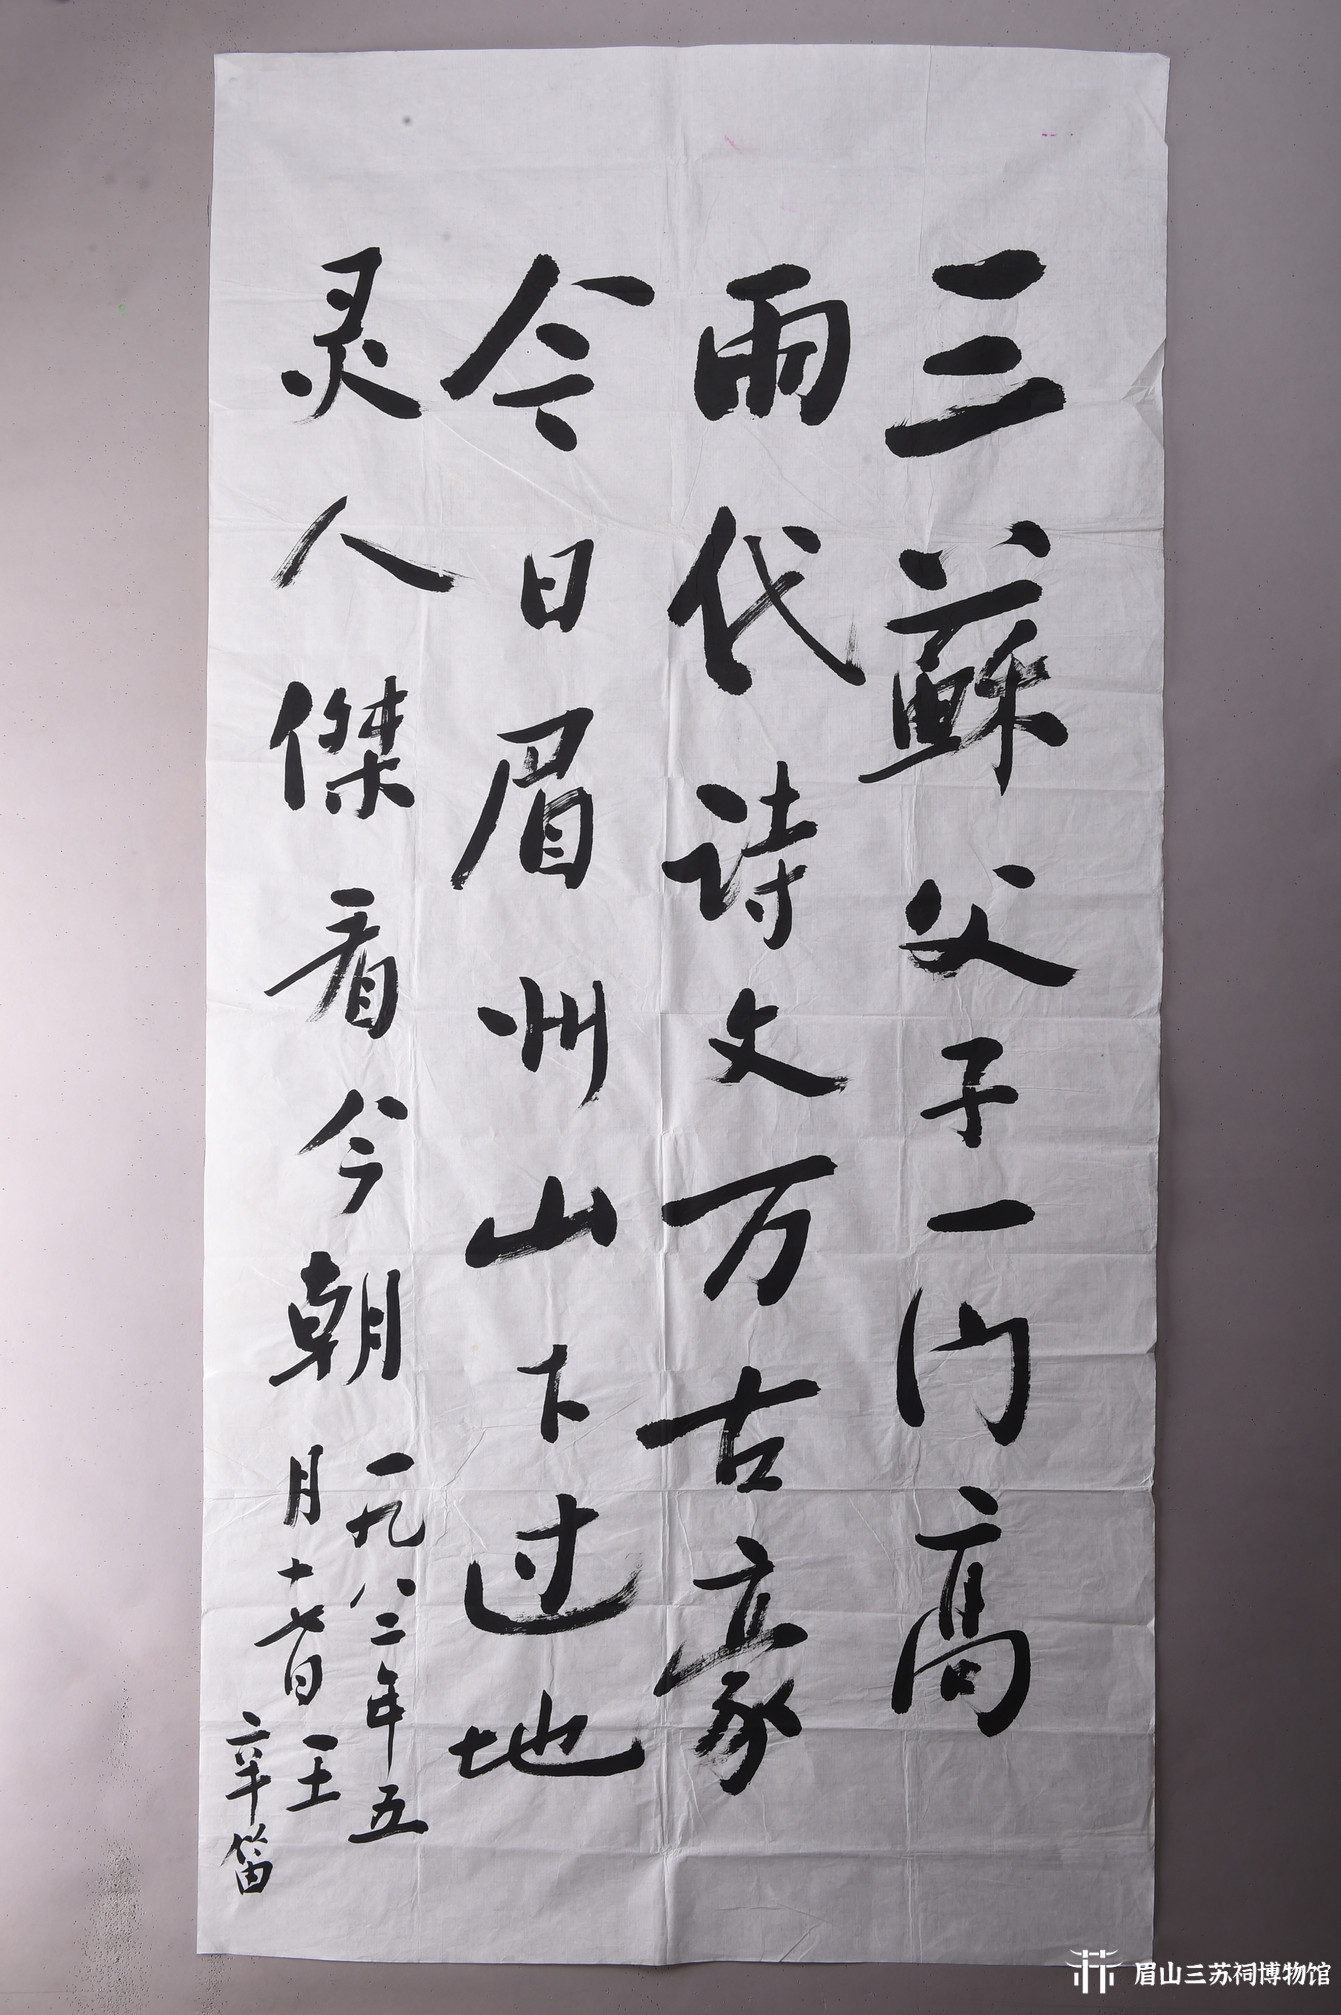 三蘇父子一门高
兩代诗文万古豪
今日眉州山下过地
灵人傑看今朝
一九八二年五
月十七日王
辛笛
眉山三苏祠博物馆